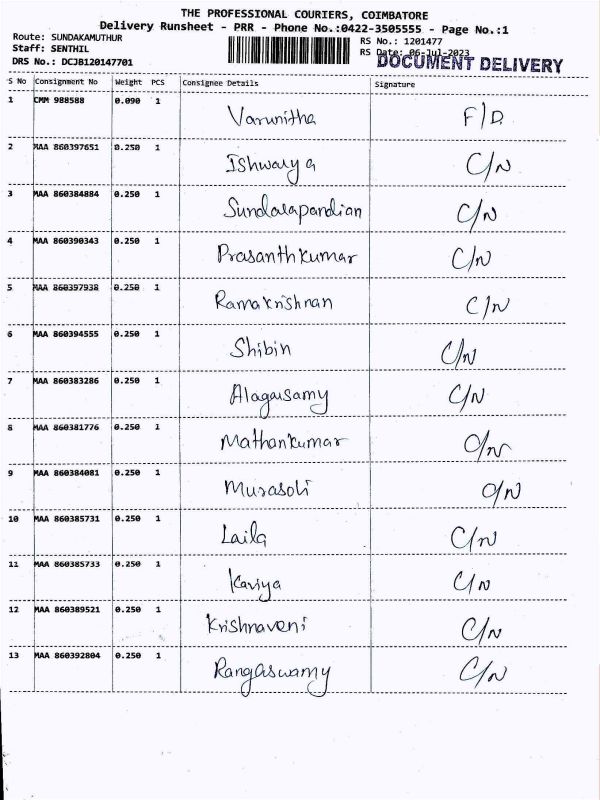 THE PROFESSIONAL COURIERS, COIMBATORE
Delivery Runsheet - PRR - Phone No.:0422-3505555 - Page No.:1
Route: SUNDAKAMUTHUR
RS No.: 1201477
Staff: SENTHIL
RS Date: 06-Jul-2023
DRS No.: DCJB120147701
DOCUMENT DELIVERY
S No Consignment No Weight PCS Consignee Details Signature
1 CMM 988588 0.090 1 Varunitha F/D
2 MAA 860397651 0.250 1 Ishwarya C/N
3 MAA 860384884 0.250 1 Sundarapandian C/N
4 MAA 860390343 0.250 1 Prasanthkumar C/N
5 MAA 860397938 0.250 1 Ramakrishnan C/N
6 MAA 860394555 0.250 1 Shibin C/N
7 MAA 860383286 0.250 1 Alagarsamy C/N
8 MAA 860381776 0.250 1 Mathankumar O/N
9 MAA 860384081 0.250 1 Murasoli O/N
10 MAA 860385731 0.250 1 Laila C/N
11 MAA 860385733 0.250 1 Kaviya C/N
12 MAA 860389521 0.250 1 Krishnaveni C/N
13 MAA 860392804 0.250 1 Rangaswamy C/N